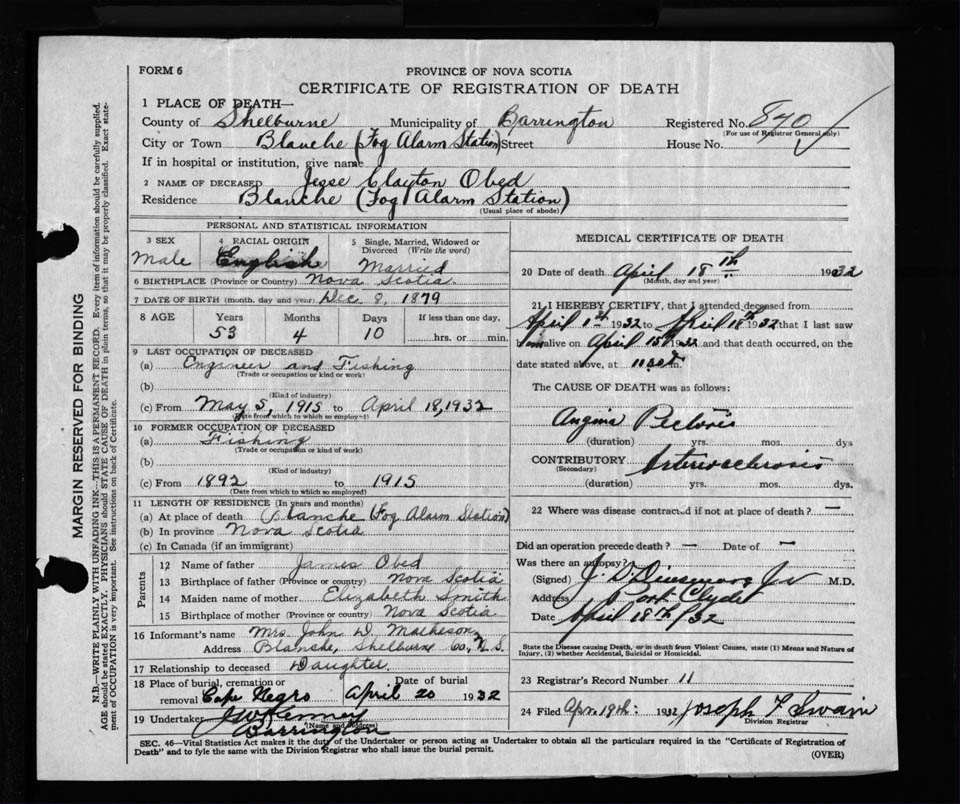 FORM 6
PROVINCE OF NOVA SCOTIA
CERTIFICATE OF REGISTRATION OF DEATH
1 PLACE OF DEATH—
County of Shelburne Municipality of Barrington Registered No. 840
(For use of Registrar General only)
City or Town Blanche (Fog Alarm Station) Street House No.
If in hospital or institution, give name
2 NAME OF DECEASED Jesse Clayton Obed
Residence Blanche (Fog Alarm Station)
(Usual place of abode)
PERSONAL AND STATISTICAL INFORMATION
3 SEX 4 RACIAL ORIGIN 5 Single, Married, Widowed or Divorced (Write the word)
Male English Married
6 BIRTHPLACE (Province or Country) Nova Scotia
7 DATE OF BIRTH (month, day and year) Dec. 8, 1879
8 AGE Years Months Days If less than one day,
53 4 10 hrs. or min.
9 LAST OCCUPATION OF DECEASED
(a) Engineer and Fishing
(Trade or occupation or kind or work)
(b)
(Kind of industry)
(c) From May 5, 1915 to April 18, 1932
(Date from which to which so employed)
10 FORMER OCCUPATION OF DECEASED
(a) Fishing
(Trade or occupation or kind of work)
(b)
(Kind of industry)
(c) From 1892 to 1915
(Date from which to which so employed)
11 LENGTH OF RESIDENCE (In years and months)
(a) At place of death Blanche (Fog Alarm Station)
(b) In province Nova Scotia
(c) In Canada (if an immigrant)
Parents
12 Name of father James Obed
13 Birthplace of father (Province or country) Nova Scotia
14 Maiden name of mother Elizabeth Smith
15 Birthplace of mother (Province or country) Nova Scotia
16 Informant's name Mrs. John D. Matheson
Address Blanche, Shelburne Co., N.S.
17 Relationship to deceased Daughter
18 Place of burial, cremation or removal Date of burial
Cape Negro April 20 1932
19 Undertaker
(Name and Address)
Barrington
MEDICAL CERTIFICATE OF DEATH
20 Date of death April 18th 1932
(Month, day and year)
21 I HEREBY CERTIFY, that I attended deceased from
April 1st 1932 to April 18th 1932 that I last saw
him alive on April 15th 1932 and that death occurred, on the
date stated above, at 11 m.
The CAUSE OF DEATH was as follows:
Angina Pectoris
(duration) yrs. mos. dys
CONTRIBUTORY Arteriosclerosis
(Secondary)
(duration) yrs. mos. dys.
22 Where was disease contracted if not at place of death? —
Did an operation precede death? — Date of —
Was there an autopsy?
(Signed) M.D.
Address Port Clyde
Date April 18th/32
State the Disease causing Death, or in death from Violent Causes, state (1) Means and Nature of
Injury, (2) whether Accidental, Suicidal or Homicidal.
23 Registrar's Record Number 11
24 Filed Apr. 19th: 1932 Joseph F Swain
Division Registrar
SEC. 46—Vital Statistics Act makes it the duty of the Undertaker or person acting as Undertaker to obtain all the particulars required in the "Certificate of Registration of
Death" and to fyle the same with the Division Registrar who shall issue the burial permit.
(OVER)
MARGIN RESERVED FOR BINDING
N.B.—WRITE PLAINLY WITH UNFADING INK—THIS IS A PERMANENT RECORD. Every item of information should be carefully supplied.
AGE should be stated EXACTLY. PHYSICIANS should STATE CAUSE OF DEATH in plain terms, so that it may be properly classified. Exact state-
ment of OCCUPATION is very important. See instructions on back of Certificate.